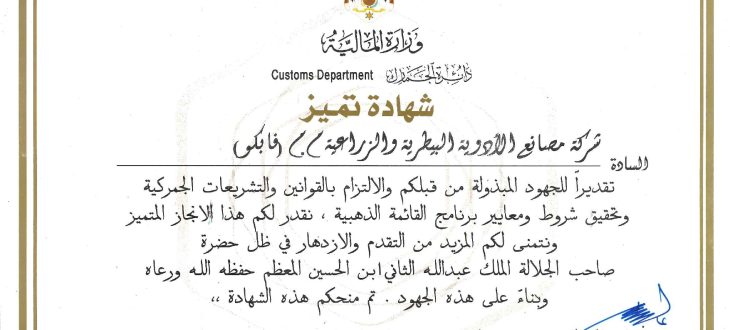 وزارة المالية
Customs Department دائرة الجمارك
شهادة تميز
شركة مصانع الأدوية البيطرية والزراعية م.م (فابكو)
السادة
تقديراً للجهود المبذولة من قبلكم والالتزام بالقوانين والتشريعات الجمركية
وتحقيق شروط ومعايير برنامج القائمة الذهبية ، نقدر لكم هذا الانجاز المتميز
ونتمنى لكم المزيد من التقدم والازدهار في ظل حضرة
صاحب الجلالة الملك عبدالله الثاني ابن الحسين المعظم حفظه الله ورعاه
وبناءً على هذه الجهود . تم منحكم هذه الشهادة ،،